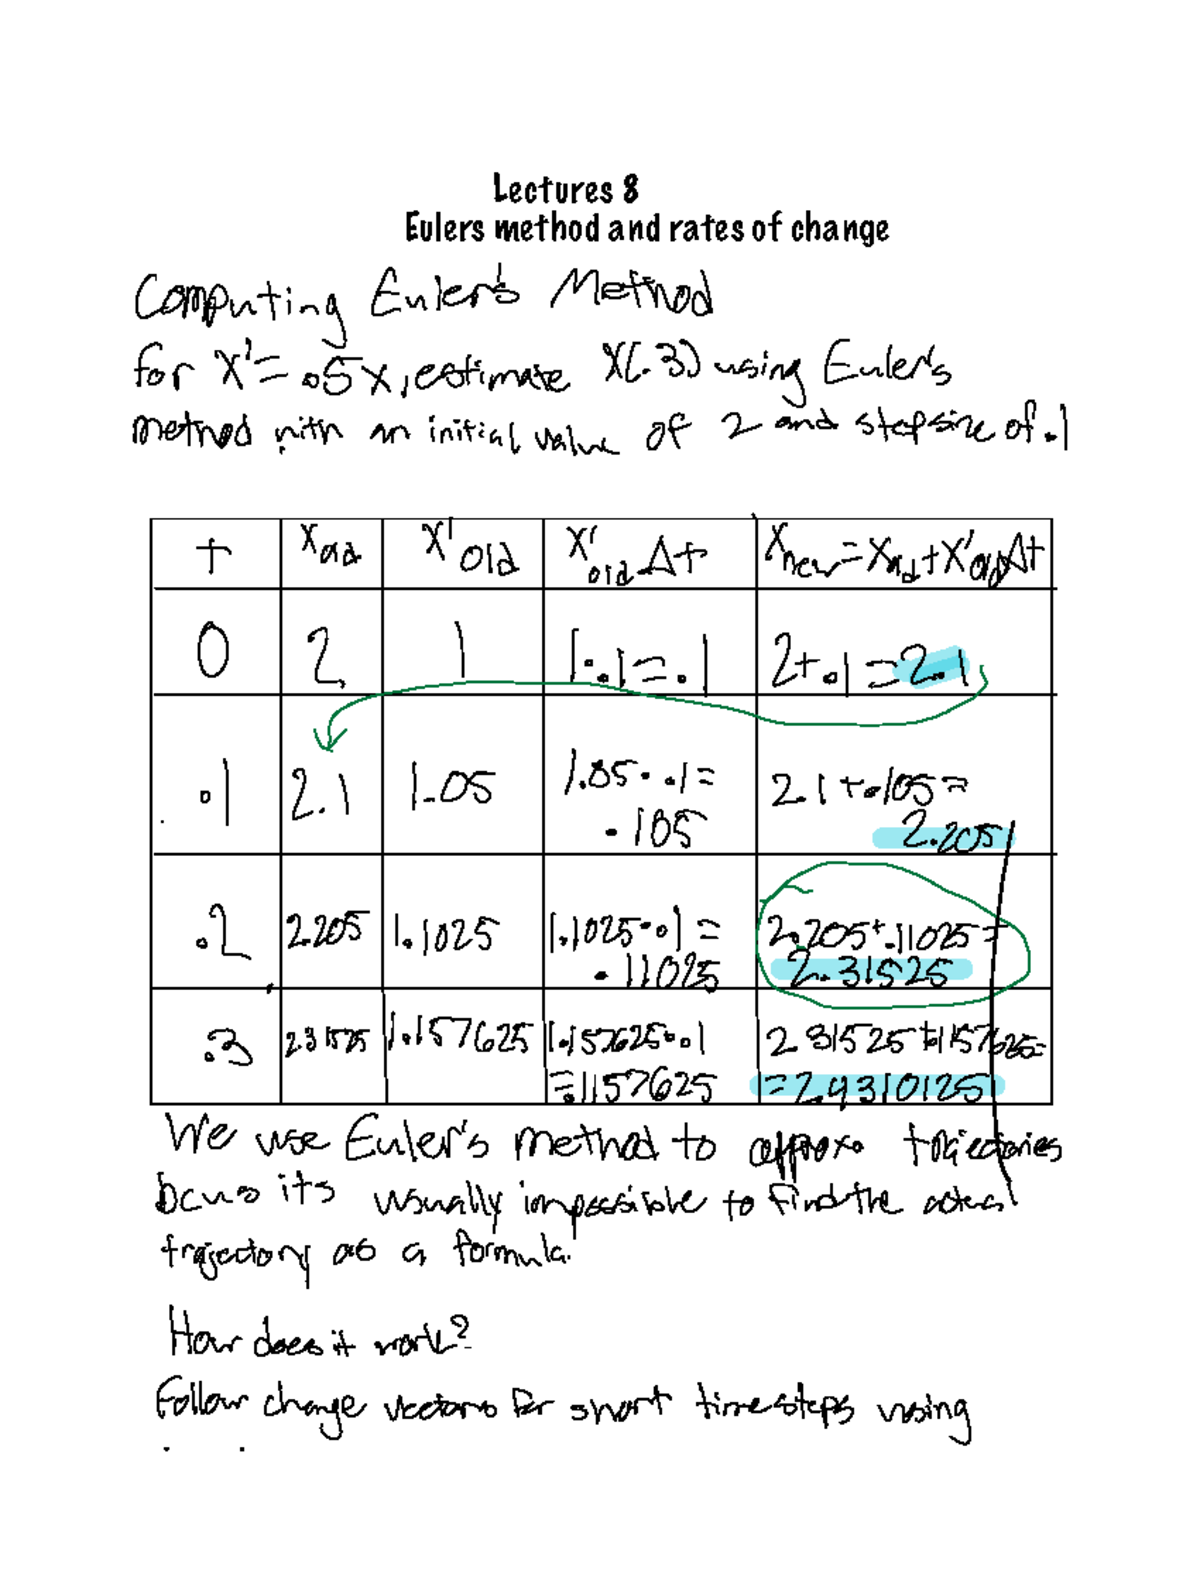 Lectures 8
Eulers method and rates of change
Computing Euler's Method
for X' = .5x, estimate X(.3) using Euler's
method with an initial value of 2 and stepsize of .1
t Xold X'old X'old Δt Xnew = Xold + X'old Δt
0 2 1 1·.1=.1 2+.1=2.1
.1 2.1 1.05 1.05·.1= 2.1+.105=
.105 2.205
.2 2.205 1.1025 1.1025·.1= 2.205+.11025=
.11025 2.31525
.3 2.31525 1.157625 1.157625·.1 2.31525+.1157625=
=.1157625 =2.4310125
We use Euler's method to approx. trajectories
its usually impossible to find the actual
trajectory as a formula.
How does it work?
Follow change vectors for short timesteps using